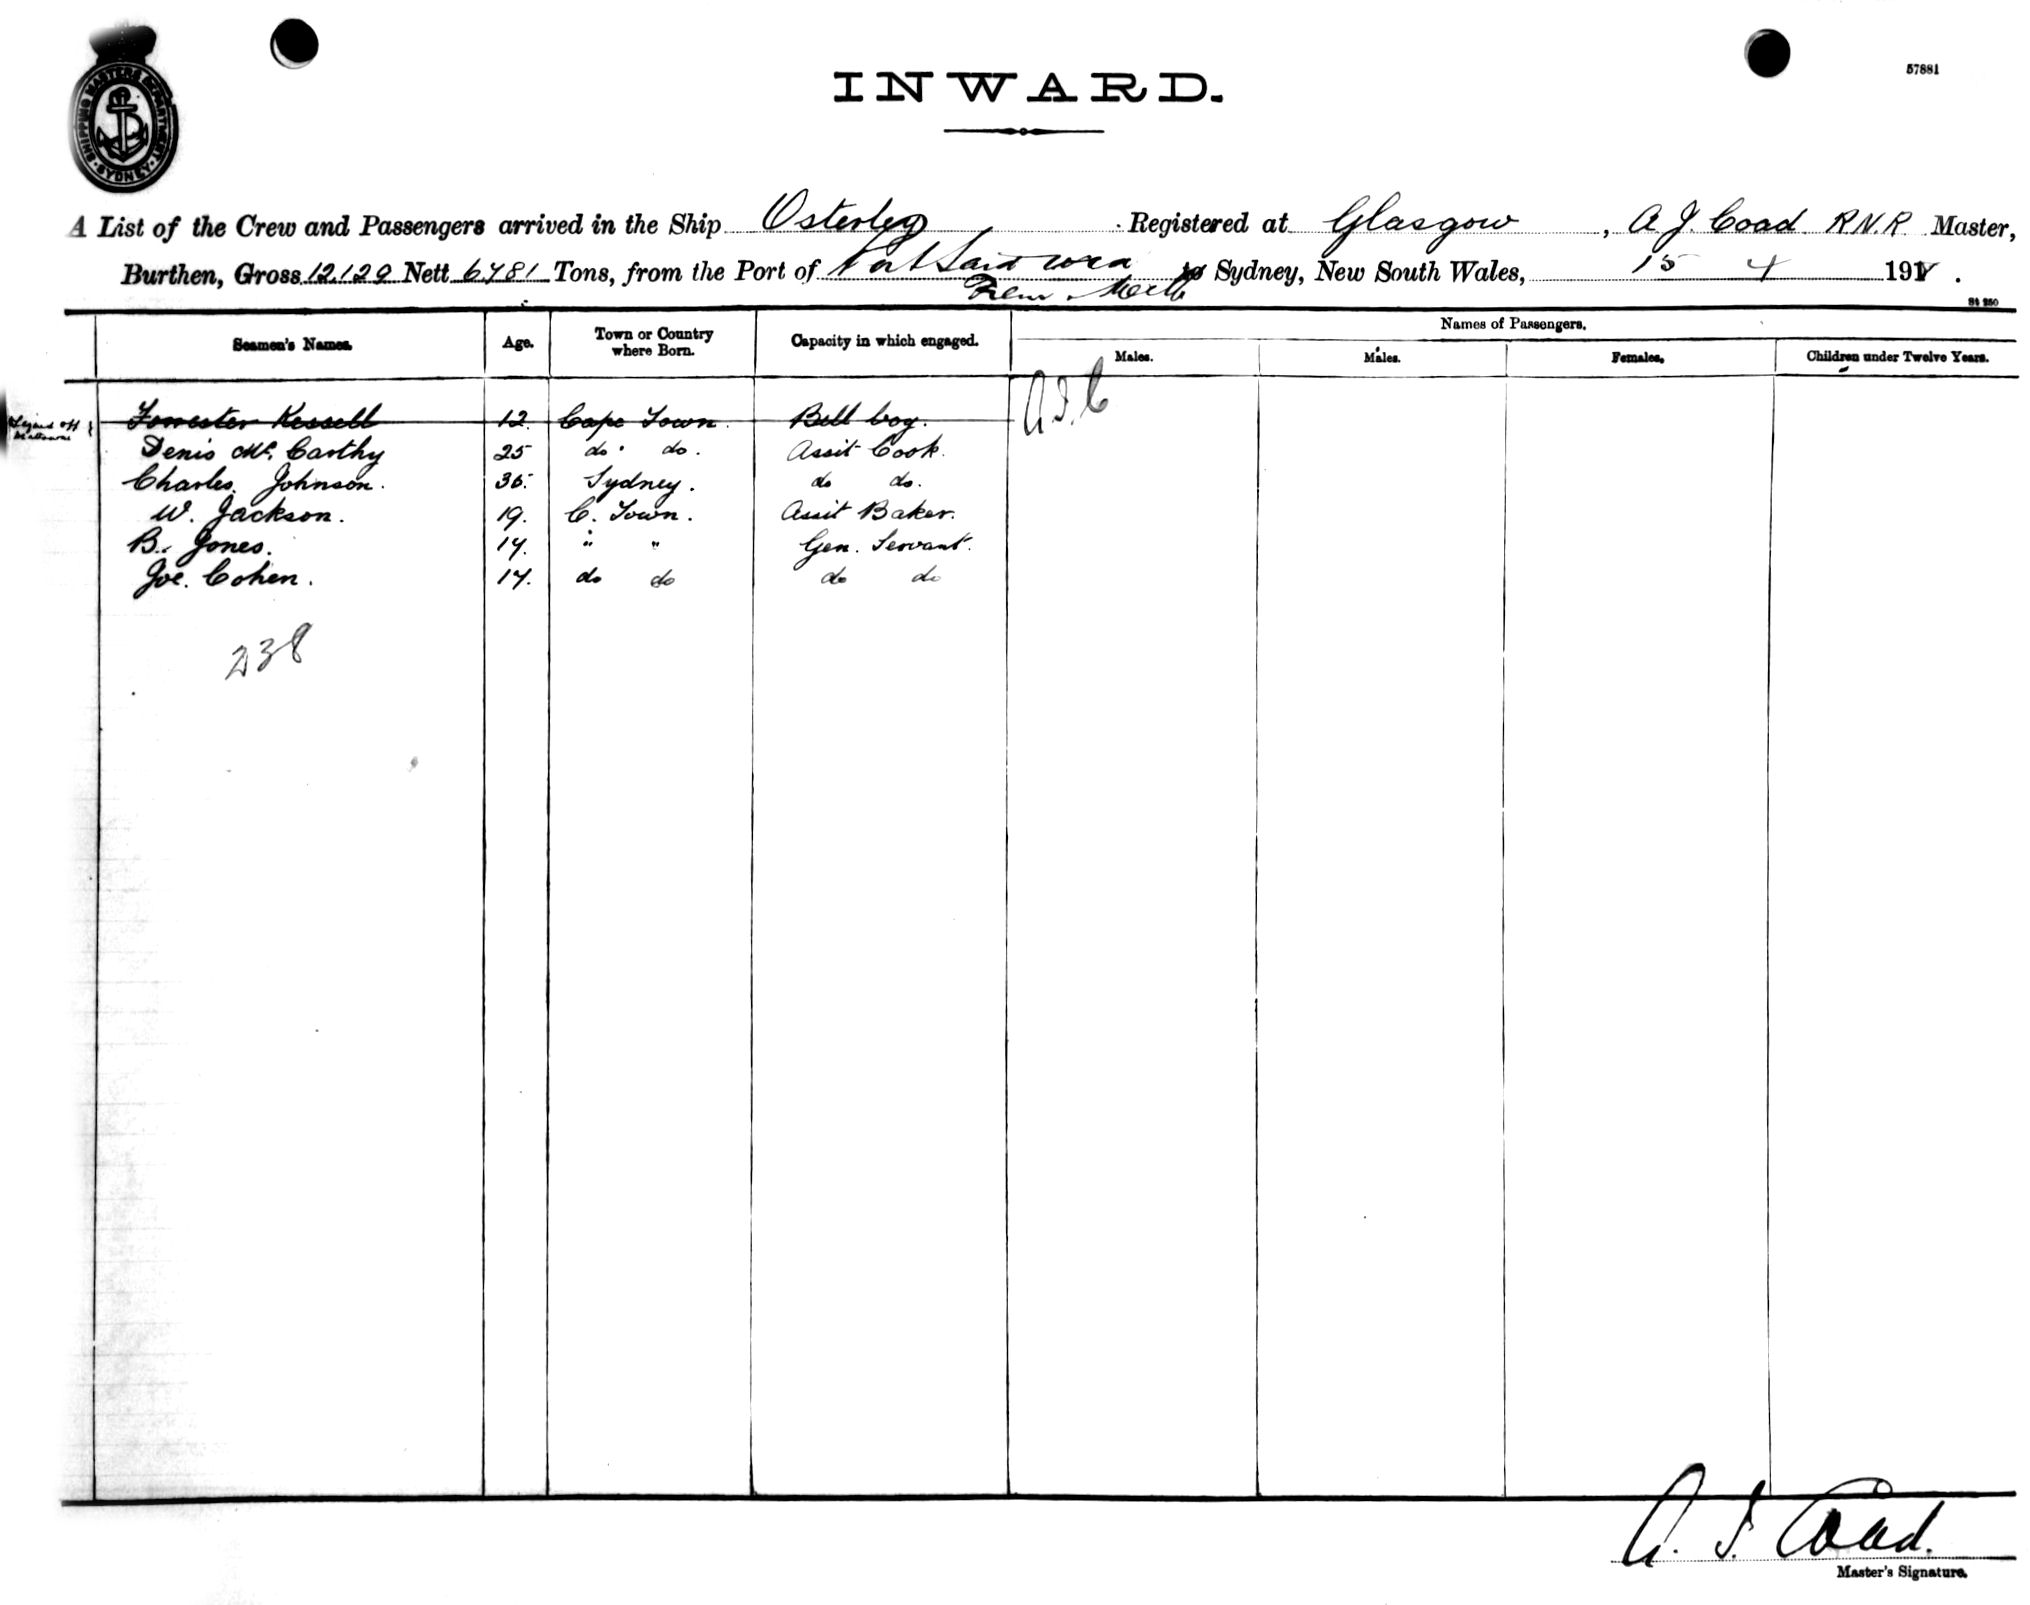 57881
INWARD.
SHIPPING MASTERS DEPARTMENT · SYDNEY ·
A List of the Crew and Passengers arrived in the Ship Osterley Registered at Glasgow, A. J. Coad R.N.R. Master,
Burthen, Gross 12.129 Nett 6781 Tons, from the Port of Port Said to Sydney, New South Wales, 15 4 191
Frem Melb
St 250
Seamen's Names. Age. Town or Country where Born. Capacity in which engaged. Names of Passengers.
Males. Males. Females. Children under Twelve Years.
A.J.C
Signed off
Forrester Kessell 12 Cape Town Bell boy.
Denis Mc. Carthy 25 do. do. Assit Cook.
Charles Johnson. 35. Sydney. do do.
W. Jackson. 19. C. Town. Assit Baker.
B. Jones. 17. " " Gen. Servant.
Joe. Cohen. 17. do do do do
238
A. J. Coad.
Master's Signature.